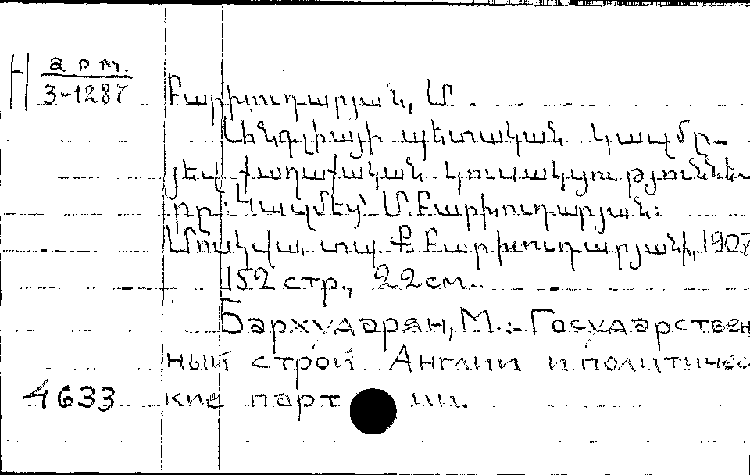 Н арт.
3-1287
Բարխուդարյան, Մ.
Անգլիայի պետական կազմը
յեվ քաղաքական կուսակցություննե-
րը: Կազմեց՝ Մ. Բարխուդարյան:
Մոսկվա, տպ. Բարխուդարյանի, 1907
152 стр., 22 см.
Бархударян, М.:- Государствен
ный строй Англии и политичес
4633 кие парт ии.